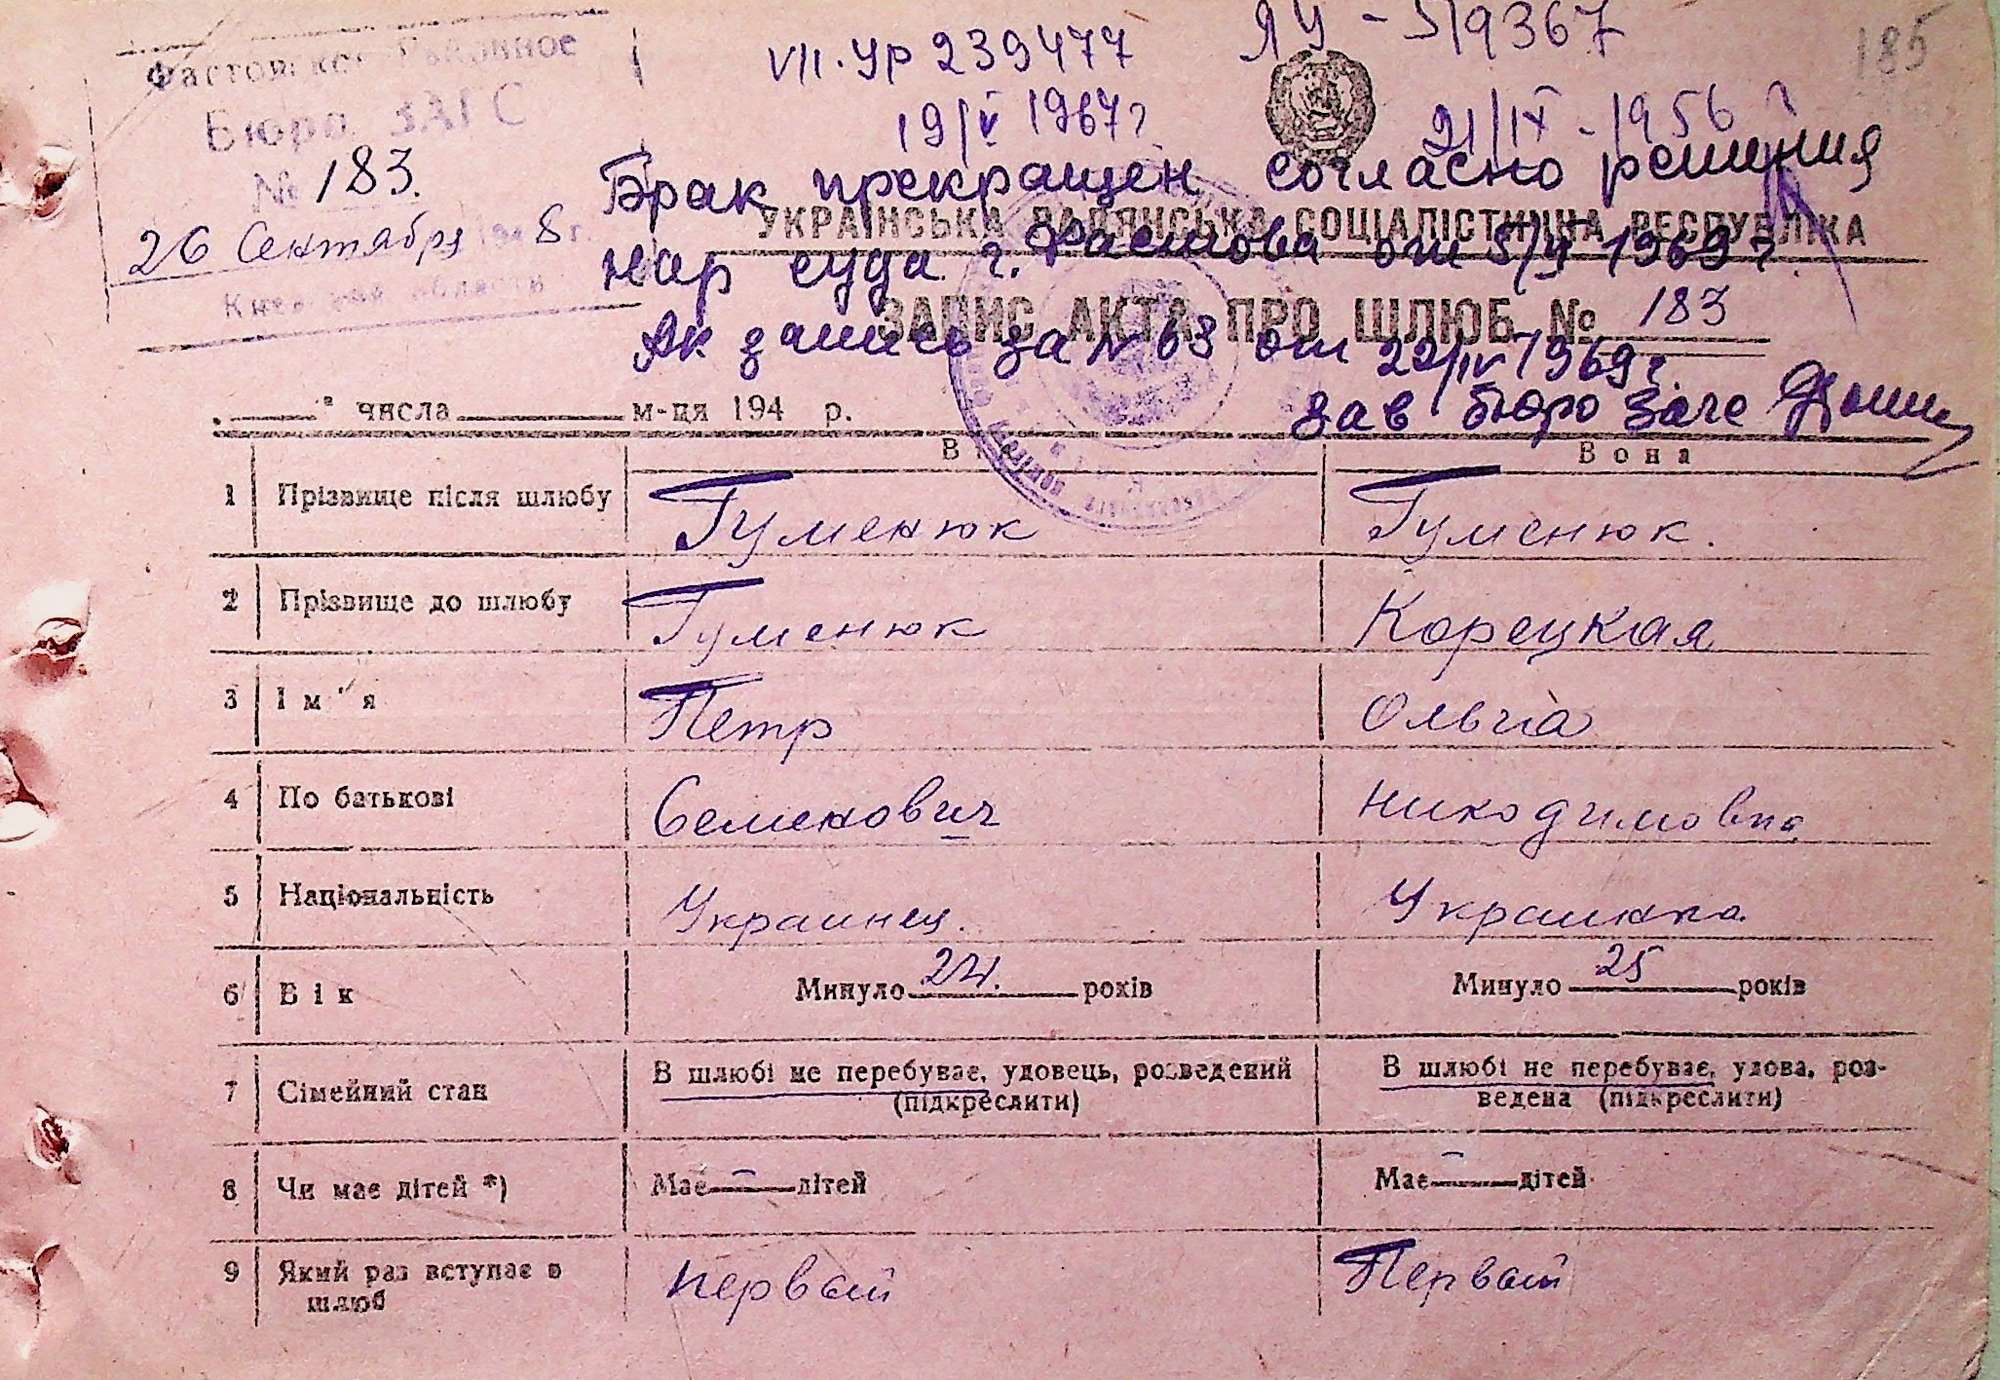 Фастовское Районное
Бюро ЗАГС
№ 183.
26 Сентября 1948 г.
Киевской области
VII. УР 239477
19/V 1967 г
ЯУ - 519367
21/IX - 1956 г
185
Брак прекращен согласно решения
УКРАЇНСЬКА РАДЯНСЬКА СОЦІАЛІСТИЧНА РЕСПУБЛІКА
нар суда г. Фастова от 5/ 1969 г.
ЗАПИС АКТА ПРО ШЛЮБ № 183
Ак запись за № 63 от 22/IV 1969 г.
зав бюро загс
" числа м-ця 194 р.
Він Вона
1 Прізвище після шлюбу Гуменюк Гуменюк.
2 Прізвище до шлюбу Гуменюк Корецкая
3 Ім'я Петр Ольга
4 По батькові Семенович Никодимовна
5 Національність Украинец. Украинка
6 Вік Минуло 24. років Минуло 25 років
7 Сімейний стан В шлюбі не перебуває, удовець, розведений (підкреслити) В шлюбі не перебуває, удова, роз-
ведена (підкреслити)
8 Чи має дітей *) Має — дітей Має — дітей
9 Який раз вступає в Первый Первый
шлюб